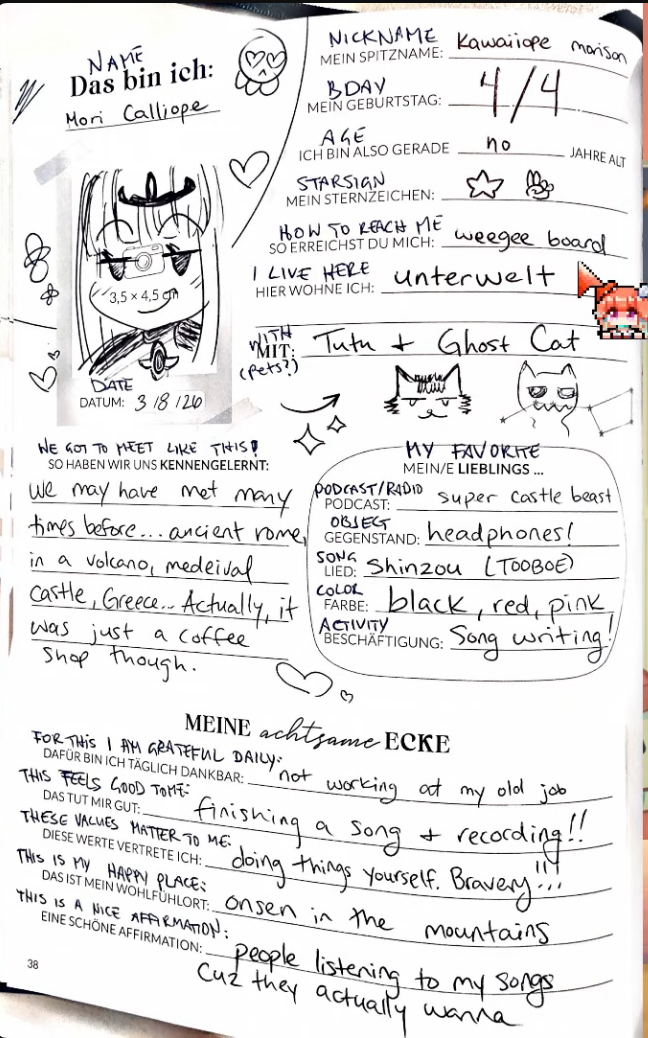 NAME
Das bin ich:
Mori Calliope
3,5 × 4,5 cm
DATE
DATUM: 3/8/26
NICKNAME
MEIN SPITZNAME: Kawaiiope morison
BDAY
MEIN GEBURTSTAG: 4/4
AGE
ICH BIN ALSO GERADE no JAHRE ALT
STARSIGN
MEIN STERNZEICHEN:
HOW TO REACH ME
SO ERREICHST DU MICH: weegee board
I LIVE HERE
HIER WOHNE ICH: unterwelt
WITH
MIT: Tutu + Ghost Cat
(pets?)
WE GOT TO MEET LIKE THIS!
SO HABEN WIR UNS KENNENGELERNT:
We may have met many
times before... ancient rome,
in a volcano, medeival
castle, Greece... Actually, it
was just a coffee
shop though.
MY FAVORITE
MEIN/E LIEBLINGS ...
PODCAST/RADIO
PODCAST: super castle beast
OBJECT
GEGENSTAND: headphones!
SONG
LIED: Shinzou (TOOBOE)
COLOR
FARBE: black, red, pink
ACTIVITY
BESCHÄFTIGUNG: Song writing!
MEINE achtsame ECKE
FOR THIS I AM GRATEFUL DAILY:
DAFÜR BIN ICH TÄGLICH DANKBAR: not working at my old job
THIS FEELS GOOD TO ME:
DAS TUT MIR GUT: finishing a song + recording!!
THESE VALUES MATTER TO ME:
DIESE WERTE VERTRETE ICH: doing things yourself. Bravery!!!
THIS IS MY HAPPY PLACE:
DAS IST MEIN WOHLFÜHLORT: onsen in the mountains
THIS IS A NICE AFFIRMATION:
EINE SCHÖNE AFFIRMATION: people listening to my songs
Cuz they actually wanna
38